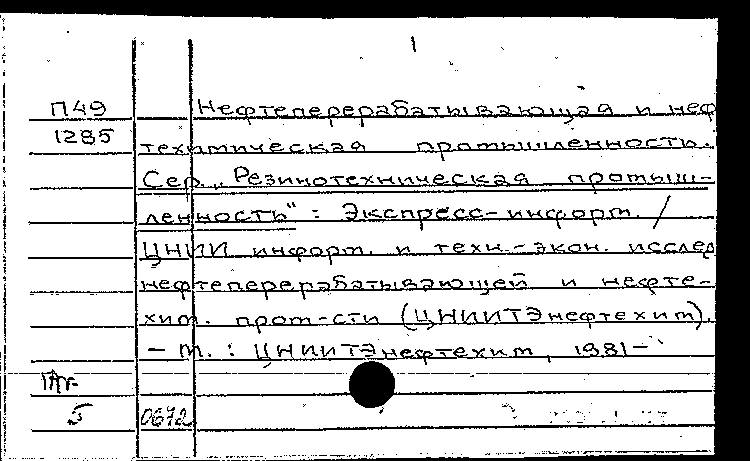 П49 Нефтеперерабатывающая и неф
1285 техимическая промышленность.
Сер. „Резинотехническая промыш-
ленность" : Экспресс-информ. /
ЦНИИ информ. и техн.-экон. исслед
нефтеперерабатывающей и нефте-
хим. пром-сти (ЦНИИТЭнефтехим).
- М. : ЦНИИТЭнефтехим, 1981-
5 0672